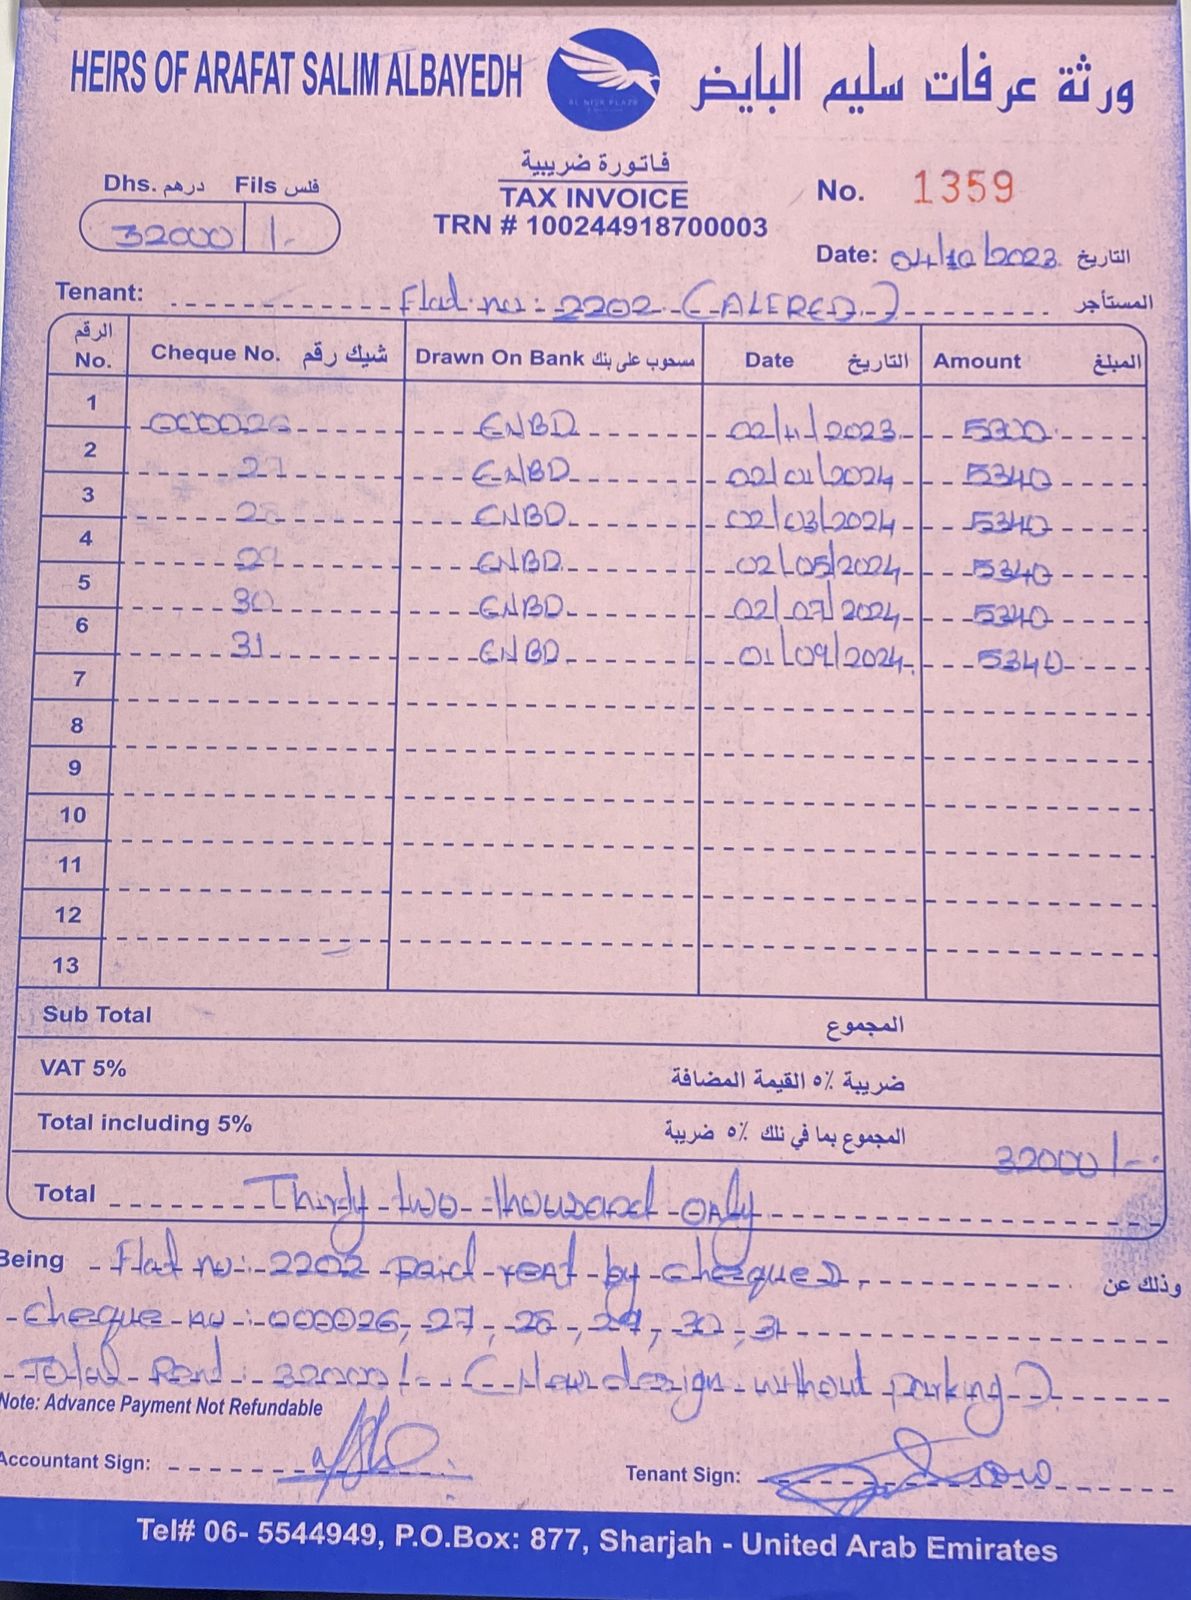 HEIRS OF ARAFAT SALIM ALBAYEDH ورثة عرفات سليم البايض
AL NISR PLAZA
فاتورة ضريبية
TAX INVOICE
TRN # 100244918700003
Dhs. درهم Fils فلس
32000 /-
No. 1359
Date: 04/10/2023 التاريخ
Tenant: Flat no: 2202 المستأجر
الرقم No. Cheque No. شيك رقم Drawn On Bank مسحوب على بنك Date التاريخ Amount المبلغ
1 000026 ENBD 02/11/2023 5300
2 27 ENBD 02/01/2024 5340
3 28 ENBD 02/03/2024 5340
4 29 ENBD 02/05/2024 5340
5 30 ENBD 02/07/2024 5340
6 31 ENBD 01/09/2024 5340
7
8
9
10
11
12
13
Sub Total المجموع
VAT 5% ضريبة ٥٪ القيمة المضافة
Total including 5% المجموع بما في ذلك ٥٪ ضريبة 32000/-
Total Thirty two thousand only
Being Flat no: 2202 paid rent by cheques, وذلك عن
cheque no: 000026, 27, 28, 29, 30, 31
Total Rent: 32000/- (New design without parking)
Note: Advance Payment Not Refundable
Accountant Sign:
Tenant Sign:
Tel# 06- 5544949, P.O.Box: 877, Sharjah - United Arab Emirates